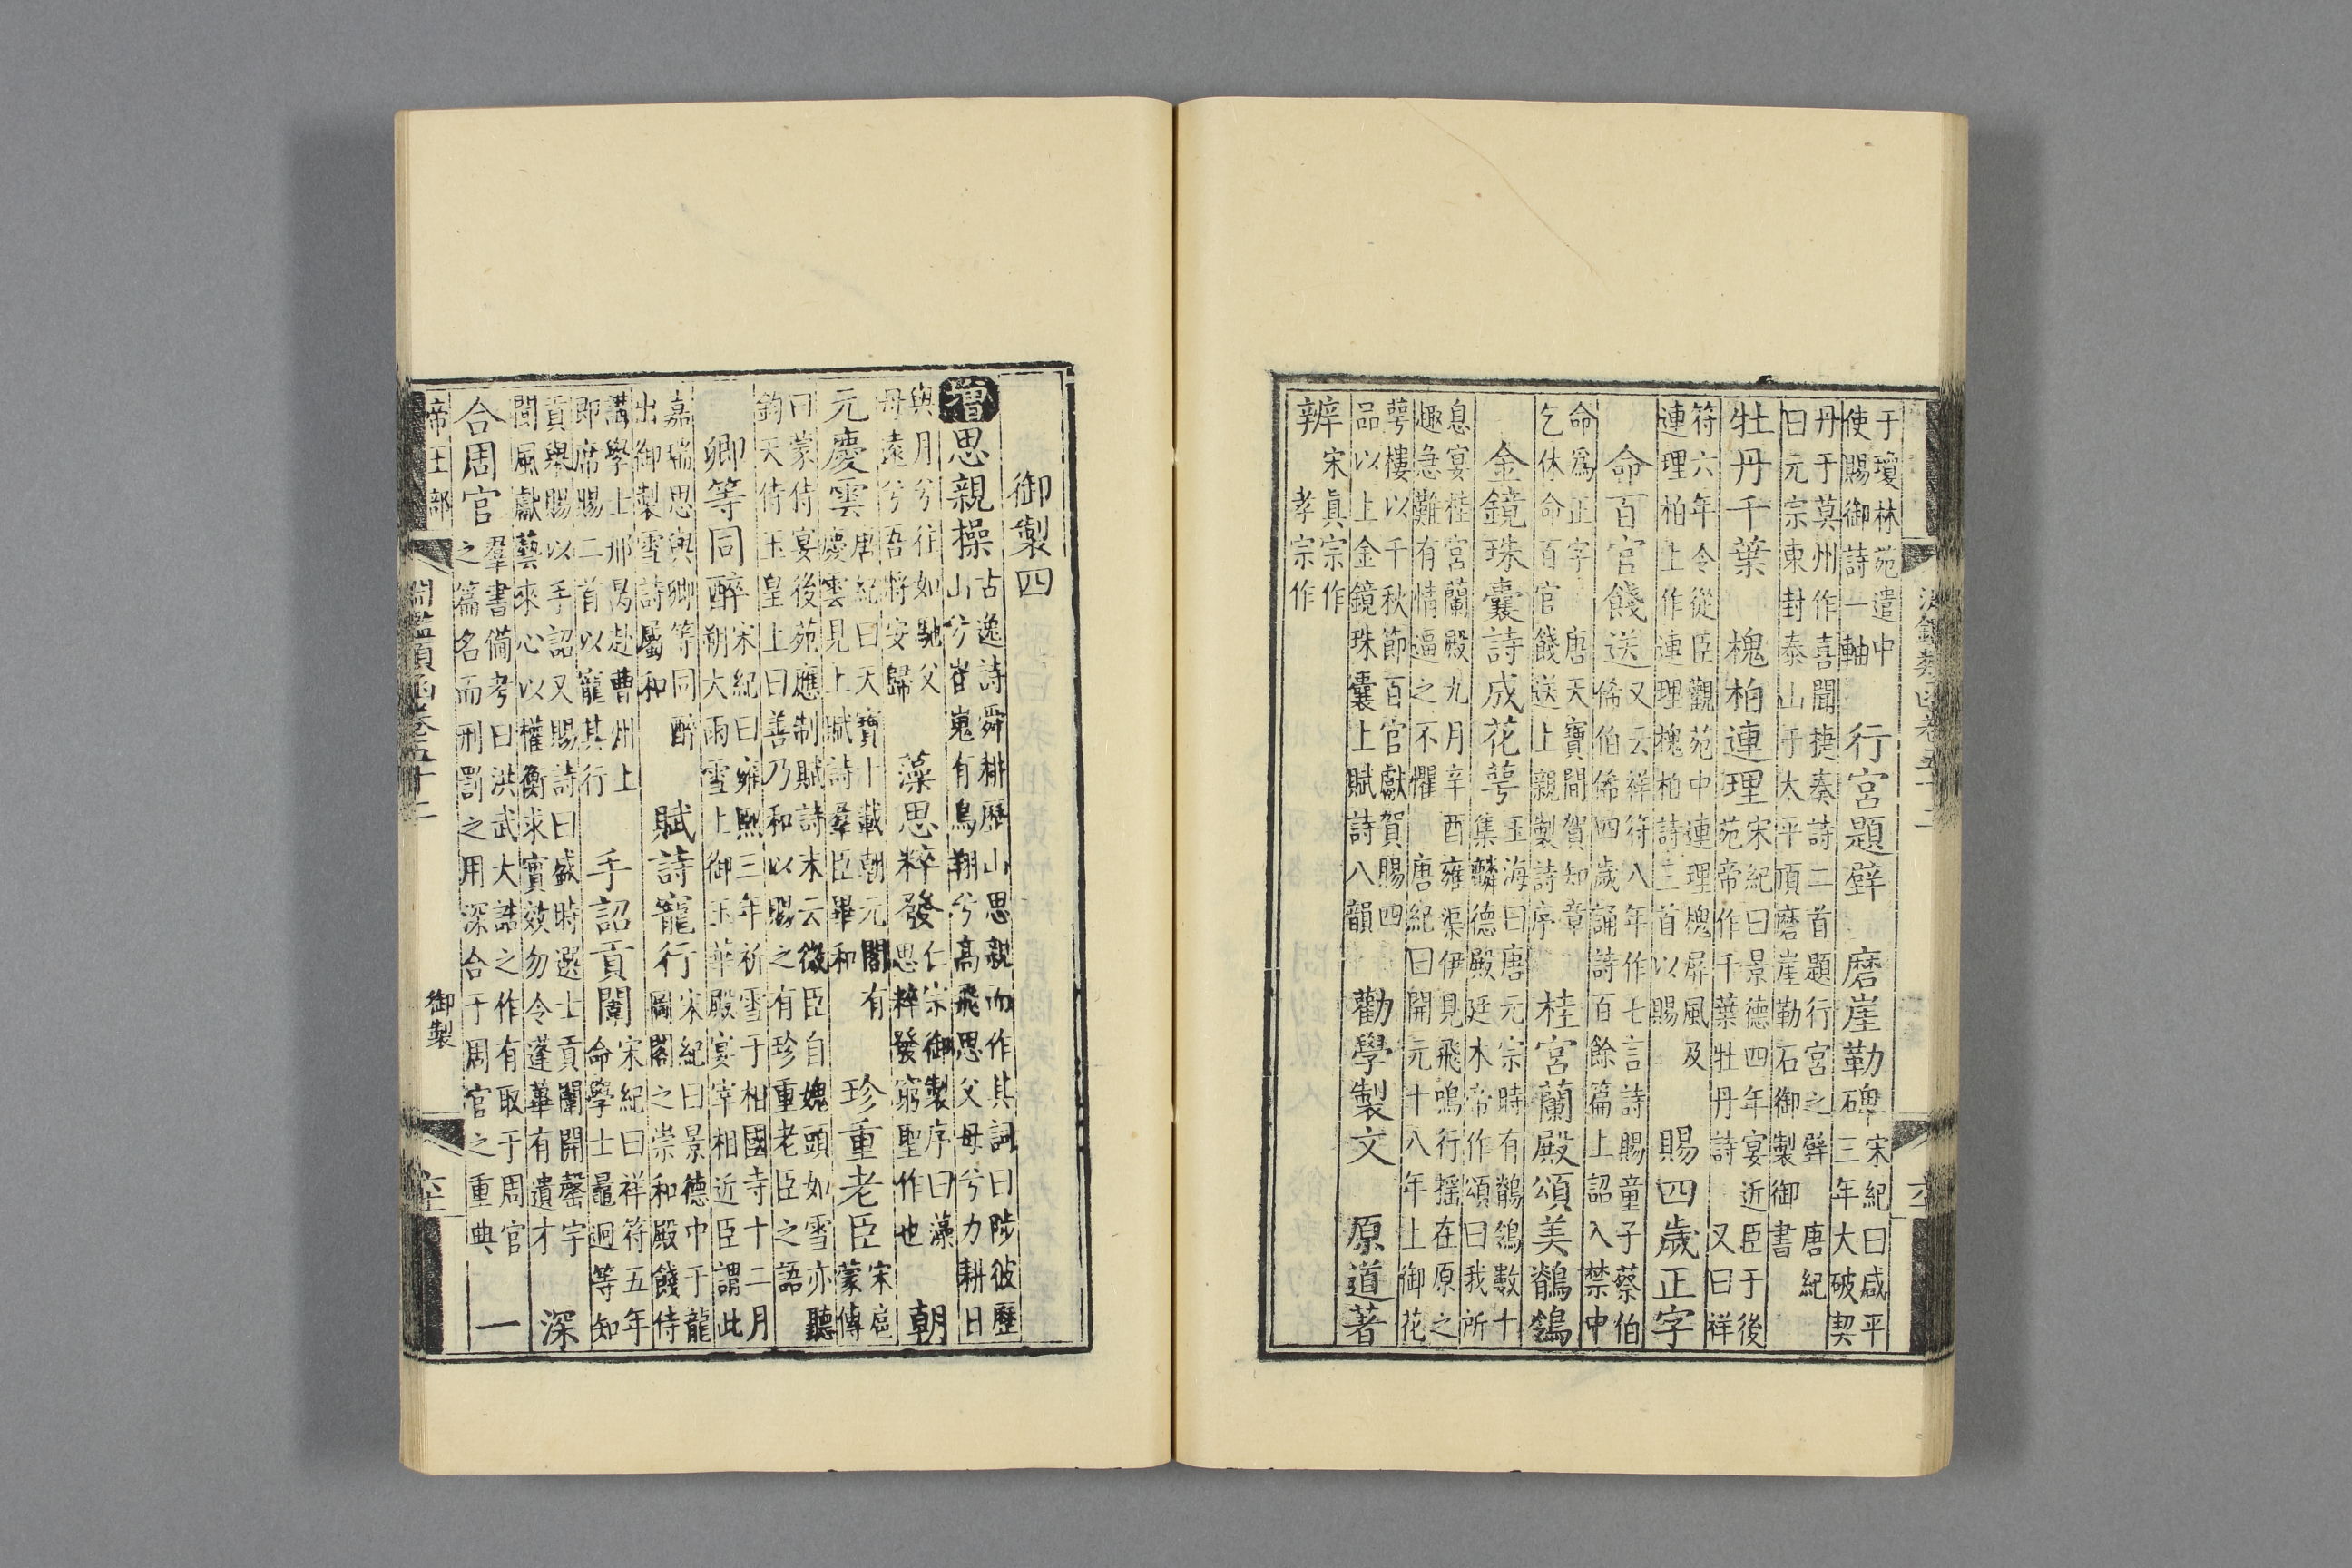 于瓊林苑遣中
使賜御詩一軸
行宮題壁
磨崖勒碑
宋紀曰咸平
三年大破契
丹于莫州作喜聞捷奏詩二首題行宮之壁
唐紀
曰元宗東封泰山于太平頂磨崖勒石御製御書
牡丹千葉
槐柏連理
宋紀曰景德四年宴近臣于後
苑帝作千葉牡丹詩
又曰祥
符六年令從臣觀苑中連理槐屏風及
連理柏上作連理槐柏詩三首以賜
賜四歲正字
命百官餞送
又云祥符八年作七言詩賜童子蔡伯
俙伯俙四歲誦詩百餘篇上詔入禁中
命爲正字
唐天寶間賀知章
乞休命百官餞送上親製詩序
桂宮蘭殿頌美鶺鴒
金鏡珠囊詩成花萼
玉海曰唐元宗時有鶺鴒數十
集麟德殿廷木帝作頌曰我所
息宴桂宮蘭殿九月辛酉雍渠伊見飛鳴行搖在原之
趣急難有情逼之不懼
唐紀曰開元十八年上御花
萼樓以千秋節百官獻賀賜四
品以上金鏡珠囊上賦詩八韻
勸學製文
原道著
辨
宋真宗作
孝宗作
御製四
增思親操
古逸詩舜耕歷山思親而作其詞曰陟彼歷
山兮崔嵬有鳥翔兮高飛思父母兮力耕日
與月兮往如馳父
母遠兮吾將安歸
藻思粹發
仁宗御製序曰藻
思粹發窮聖作也
朝
元慶雲
唐紀曰天寶十載朝元閣有
慶雲見上賦詩羣臣畢和
珍重老臣
宋㦤
蒙傳
曰蒙侍宴後苑應制賦詩末云微臣自媿頭如雪亦聽
鈞天侍玉皇上曰善乃和以賜之有珍重老臣之語
卿等同醉
宋紀曰雍熙三年祈雪于相國寺十二月
朔大雨雪上御玉華殿宴宰相近臣謂此
嘉瑞思與卿等同醉
出御製雪詩屬和
賦詩寵行
宋紀曰景德中于龍
圖閣之崇和殿餞侍
講學士邢昺赴曹州上
即席賜二首以寵其行
手詔貢闈
宋紀曰祥符五年
命學士晁迥等知
貢舉賜以手詔又賜詩曰盛時選士貢闈開罄宇
閶風獻藝來心以權衡求實效勿令蓬蓽有遺才
深
合周官
羣書備考曰洪武大誥之作有取于周官
之篇名而刑罰之用深合于周官之重典
一
帝王部
淵鑑類函卷五十二
御製